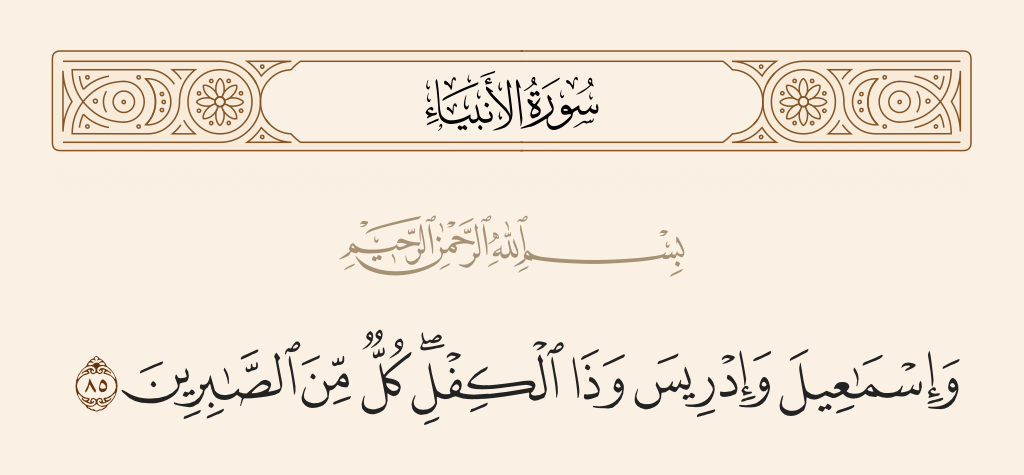 سُورَةُ الأَنبِيَاءِ
بِسْمِ ٱللَّهِ ٱلرَّحْمَٰنِ ٱلرَّحِيمِ
وَإِسْمَٰعِيلَ وَإِدْرِيسَ وَذَا ٱلْكِفْلِ ۖ كُلٌّ مِّنَ ٱلصَّٰبِرِينَ ٨٥